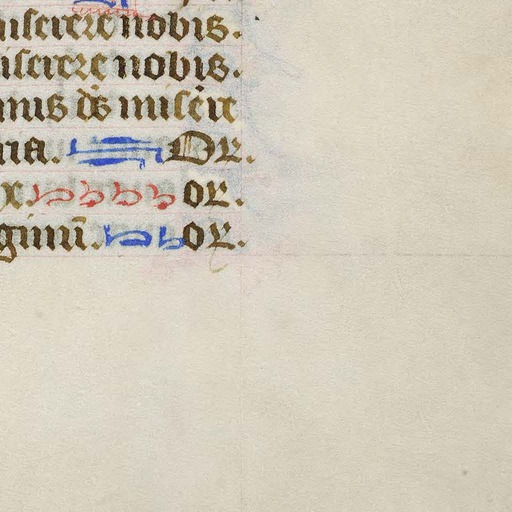 miserere nobis.
iserere nobis.
nus ds̄ miser̄e
ria. Or̄.
x. or̄.
ginū. or̄.